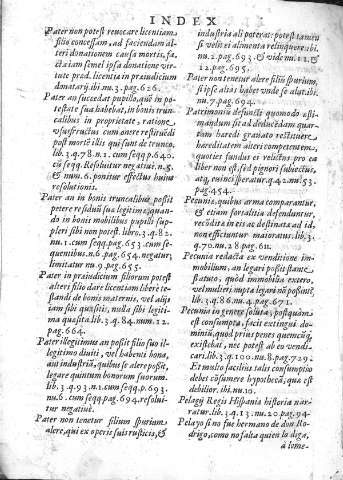 INDEX
Pater non potest reuocare licentiam
filio concessam, ad faciendum al-
teri donationem causa mortis, fa-
cta iam semel ipsa donatione vir-
tute prœd. licentia in præiudicium
donatarij ibi.nu.3.pag.626.
Pater an succedat pupillo, quē in po-
testate sua habebat, in bonis trun-
calibus in proprietate, ratione,
vsusfructus cum onere restituēdi
post mortē illis qui sunt de trunco.
lib.3.q.78.n.1.cum seqq.p.640.
cū seqq. Resoluitur negatiuè nu.5.
& nu. 6. ponitur effectus huius
resolutionis.
Pater an in bonis truncalibus possit
petere residuū suæ legitimæ; quan-
do in bonis mobilibus pupilli sup-
pleri sibi non potest. libro.3.q.82.
nu.1.cum seqq.pag.653.cum se-
quentibus.n.6.pag.654. negatur,
limitatur nu.9.pag.655.
Pater in præiudicium filiorum potest
alteri filio dare licentiam liberè te-
standi de bonis maternis, vel alijs
iam sibi quæsitis, nulla sibi legiti-
ma quæsita.lib.3.q.84.num.12.
pag.664.
Pater illegitimus an possit filio suo il-
legitimo diuiti, vel habenti bona,
aut industriā, quibus se alere possit,
legare quintum bonorum suorum.
lib.3.q.93.n.1.cum seqq.p.693.
nu.6.cum seqq.pag.694.resolui-
tur negatiuè.
Pater non tenetur filium spurium
alere, qui ex operis suis rusticis, &
industria ali poterat: potest tamen
si velit ei alimenta relinquere.ibi.
nu.2.pag.693. & vide nu.11.&
12.pag.695.
Pater non tenetur alere filiū spurium,
si ipse alias habet vnde se alat.ibi.
nu.7.pag.694.
Patrimoniū defuncti quomodo esti-
mandum sit ad deducēdam quar-
tam hæredi grauato restituere
hæreditatem alteri competentem,
quoties fundus ei relictus pro ea
liber non est, sed pignori subiectus,
atq, euinci speratur.q.42.nu.53.
pag.454.
Pecunia, quibus arma comparantur,
& etiam fortalitia defenduntur,
recōdita in eis ac destinata ad id,
non efficiuntur maioratus.lib.3.
q.70.nu.28.pag.611.
Pecunia redacta ex venditione im-
mobilium, an legari possit stante
statuto, quòd immobilia extero,
vel mulieri nupta legari nō possint
lib.3.q.86.nu.4.pag.671.
Pecunia in genere soluta, postquàm
est consumpta, facit extingui do-
minij, quod prius penes quemcūq;
existebat, nec potest ab eo vendi-
cari.lib.3.q.100.nu.8.pag.729.
Et multo facilius talis consumptio
debet cōsumere hypothecā, quæ est
debilior, ibi.nu.10.
Pelagij Regis Hispania historia nar-
ratur.lib.3.q.13.nu.20.pag.94
Pelayo si no fue hermano de don Ro-
drigo, como no falta quien lo diga,
à lome-